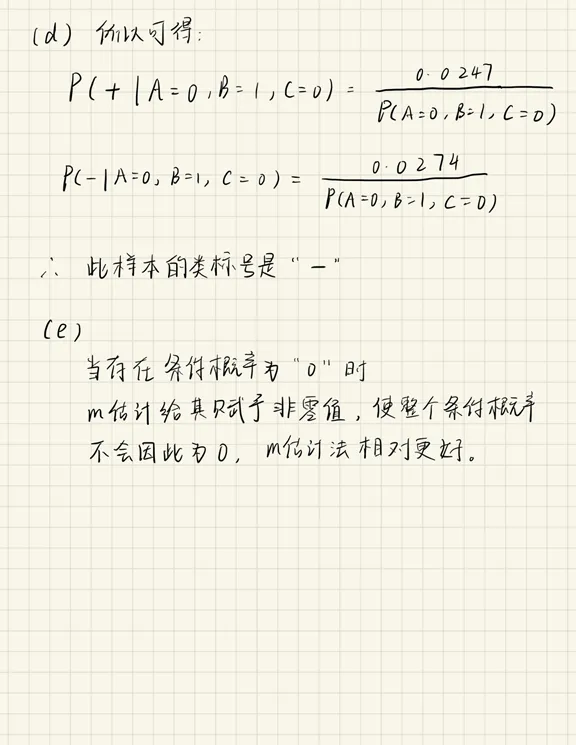 (d) 所以可得:
P(+|A=0,B=1,C=0) = 0.0247 / P(A=0,B=1,C=0)
P(-|A=0,B=1,C=0) = 0.0274 / P(A=0,B=1,C=0)
∴ 此样本的类标号是 "-"
(e)
当存在条件概率为"0"时
m估计给其赋予非零值,使整个条件概率
不会因此为0, m估计法相对更好。